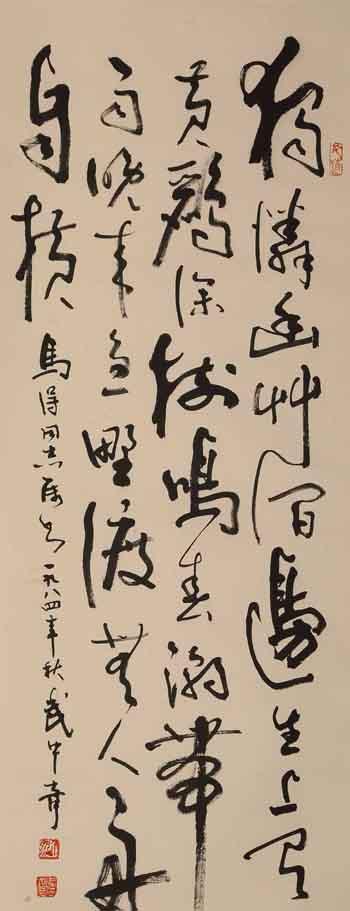 獨憐幽艸澗邊生上有
黄鸝深樹鳴春潮帶
雨晚来急野渡無人舟
自横
馬得同志屬書 一九八四年秋 武中奇